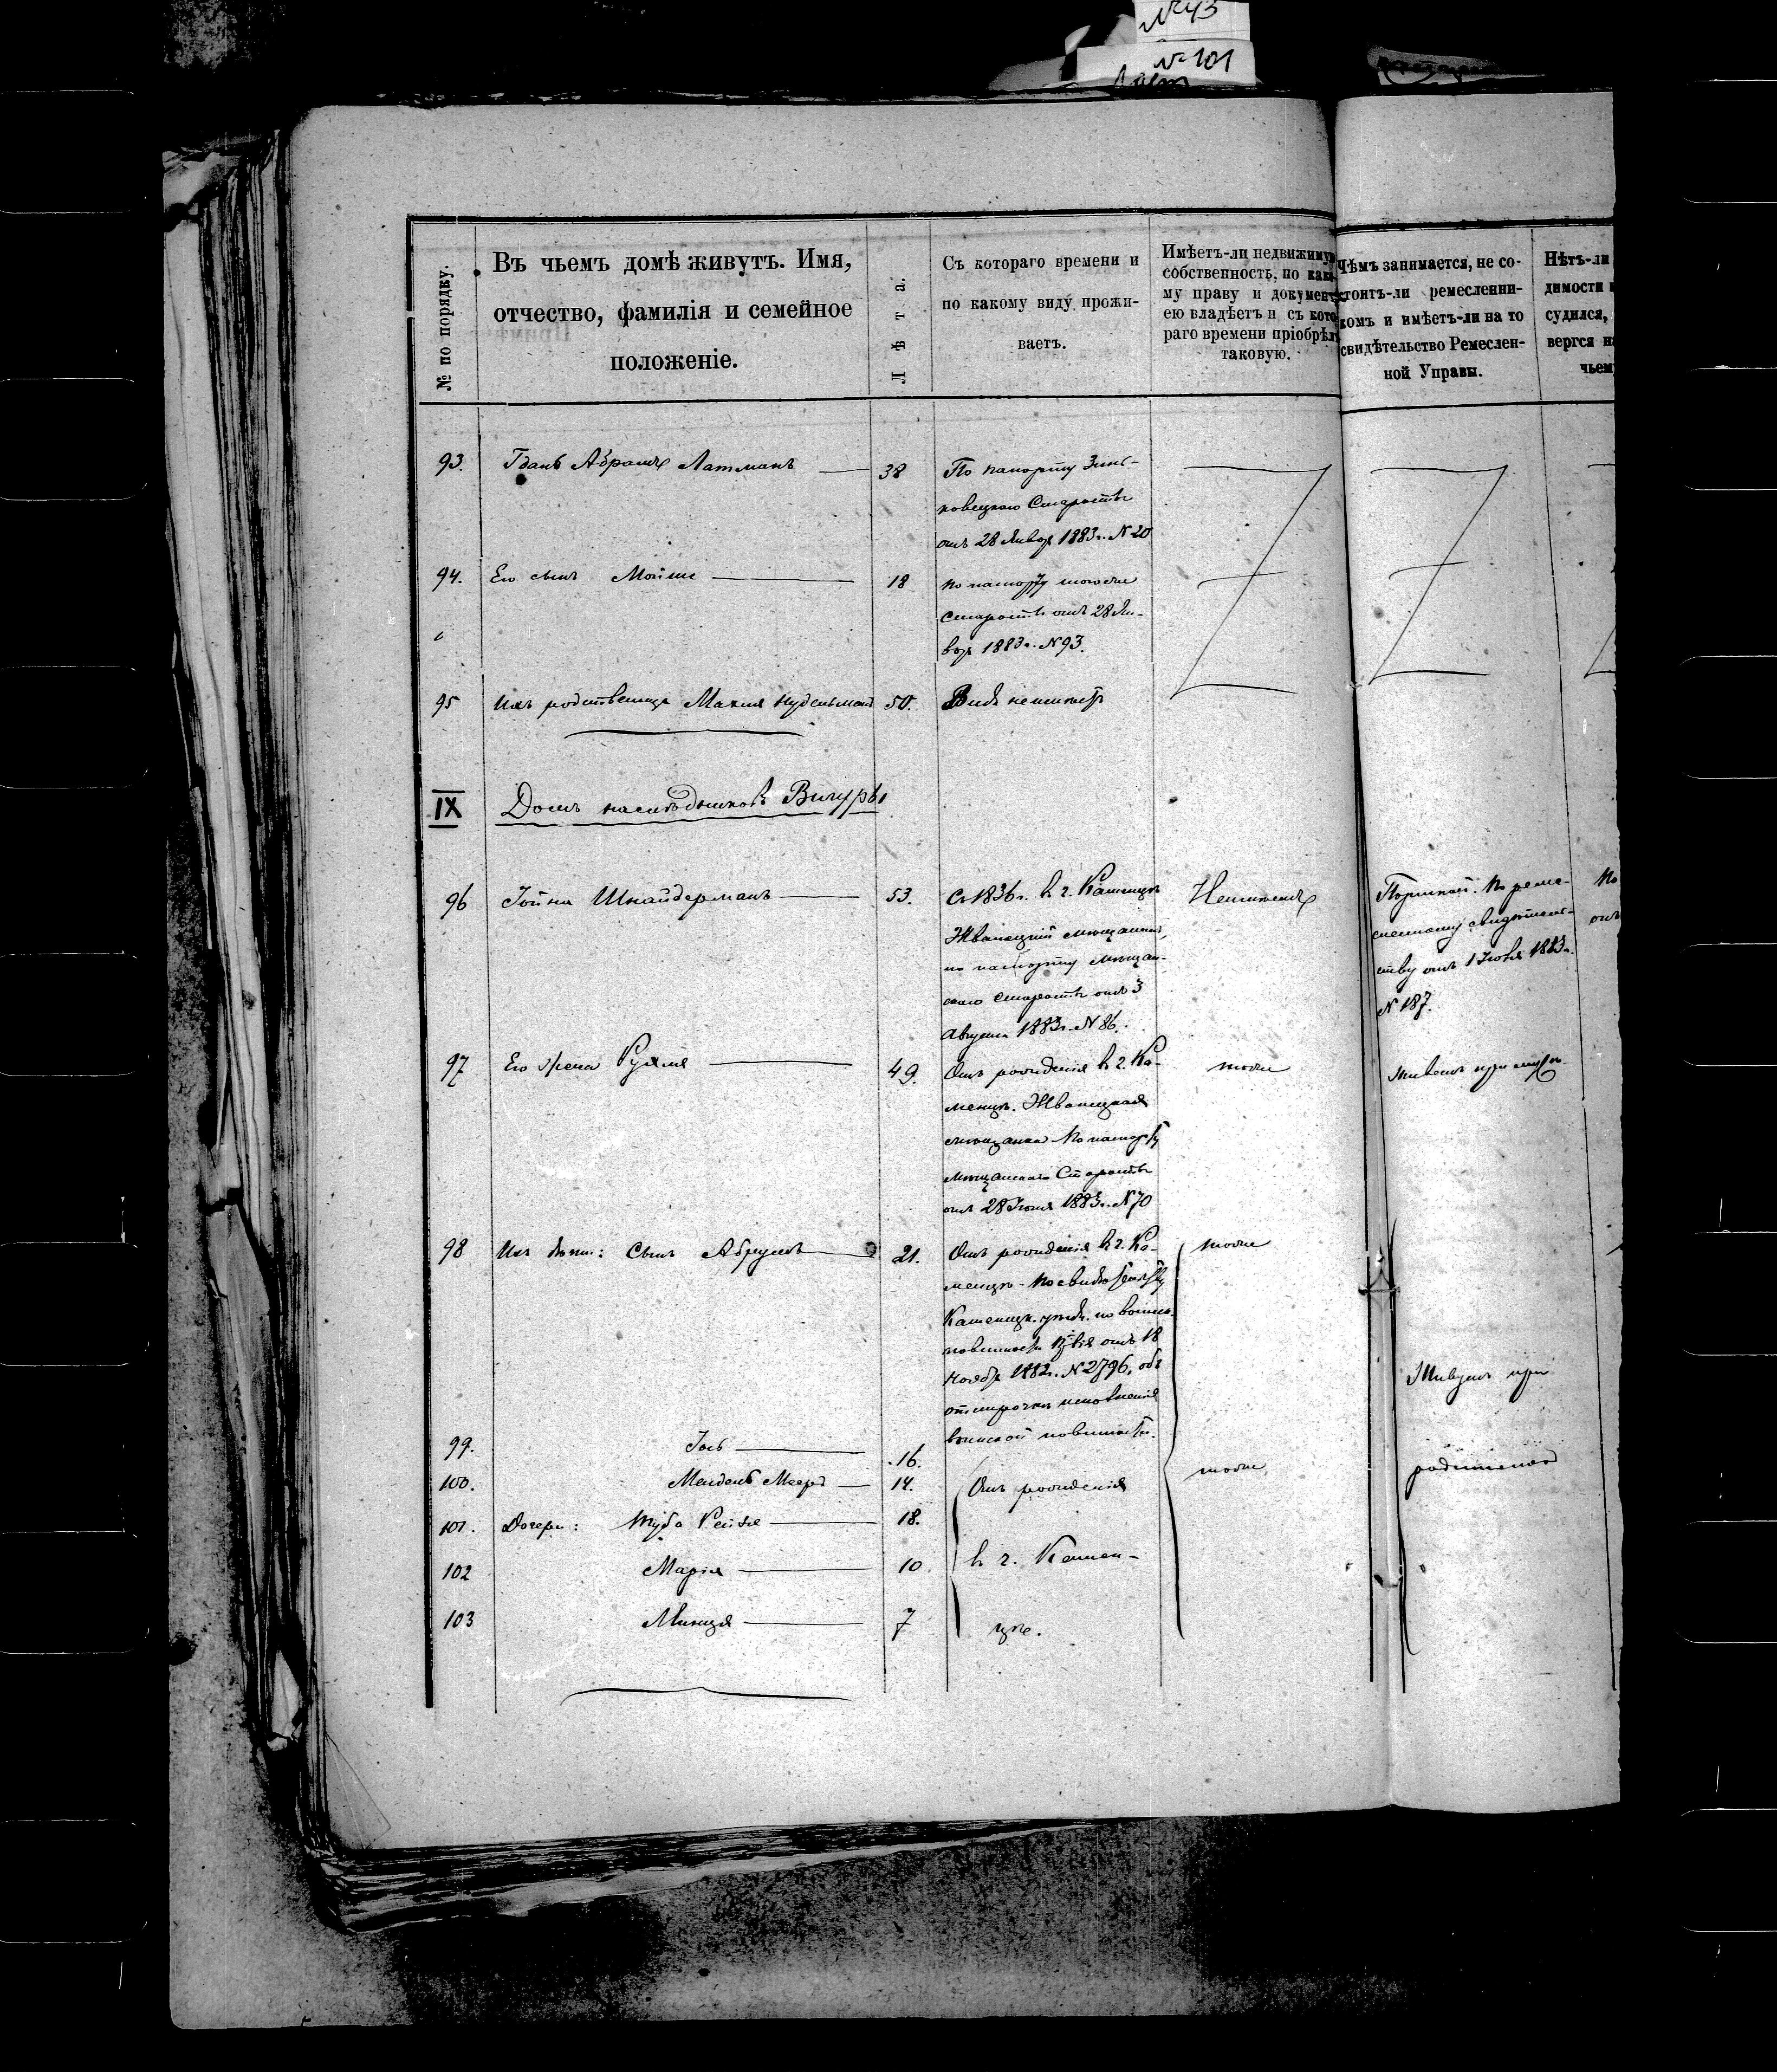 №43
№101
№ по порядку.
Въ чьемъ домѣ живутъ. Имя,
отчество, фамилія и семейное
положеніе.
Лѣта.
Съ котораго времени и
по какому виду прожи-
ваетъ.
Имѣетъ-ли недвижимую
собственность, по како-
му праву и документу
ею владѣетъ и съ кото-
раго времени пріобрѣлъ
таковую.
Чѣмъ занимается, не со-
стоитъ-ли ремесленни-
комъ и имѣетъ-ли на то
свидѣтельство Ремеслен-
ной Управы.
Нѣтъ-ли
димости
судился,
вергся
чьем
93. Абрамъ Латманъ 38
По паспорту Зинь-
ковецкаго Старосты
отъ 28 Январ 1883г. N 20
94. Его сынъ Мойше 18
по паспорту того же
Старосты отъ 28 Ян-
вар 1883г. N 93.
95 Ихъ родственница Махля Нудельманъ 50.
Вида неимѣетъ
IX Домъ наслѣдниковъ Вигуры
96 Іойна Шнайдерманъ 53.
Съ 1836г. въ г. Каменцѣ
Жванецкій мѣщанинъ,
по паспорту мѣщан-
скаго Старосты отъ 3
Августа 1883г. N 86.
Неимѣетъ
Портной. По реме-
сленному свидѣтель-
ству отъ 1 Іюня 1883г.
N 187.
По
отъ
97 Его жена Рухля 49.
Отъ рожденія въ г. Ка-
менцѣ. Жванецкая
мѣщанка По паспорту
мѣщанскаго Старосты
отъ 28 Іюня 1883г. N 70
тоже
Живетъ при мужѣ
98 Ихъ дѣти: Сынъ Абрумъ 21.
Отъ рожденія въ г. Ка-
менцѣ. По свидѣтельству
Каменецк. уѣзд. по воинск.
повинности отъ 18
Ноябр 1882г. N 2796, объ
отсрочкѣ исполненія
воинской повинности.
тоже
Живутъ при
родителяхъ
99. Іось 16.
100. Мендель Мееръ 14.
101. Дочери: Туба Рейзя 18.
102 Марія 10
103 Минця 7
Отъ рожденія
въ г. Камен-
цѣ.
тоже